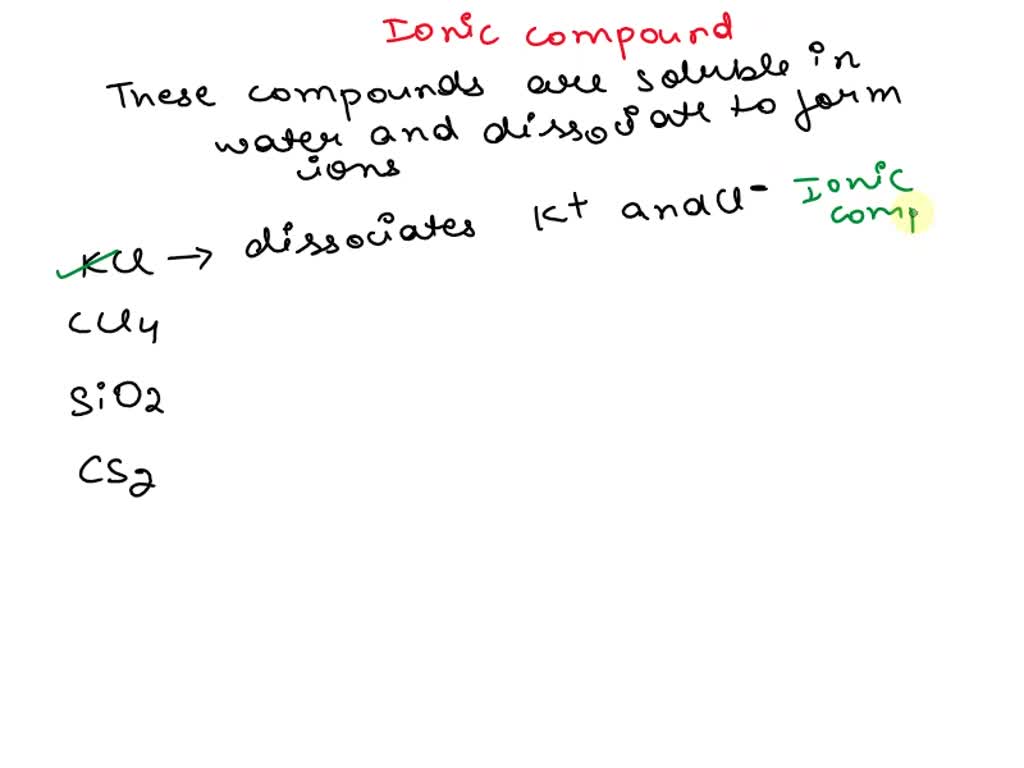 Ionic compound
These compounds are soluble in
water and dissociate to form
ions
KCl → dissociates K+ and Cl- Ionic
comp
CCl4
SiO2
CS2